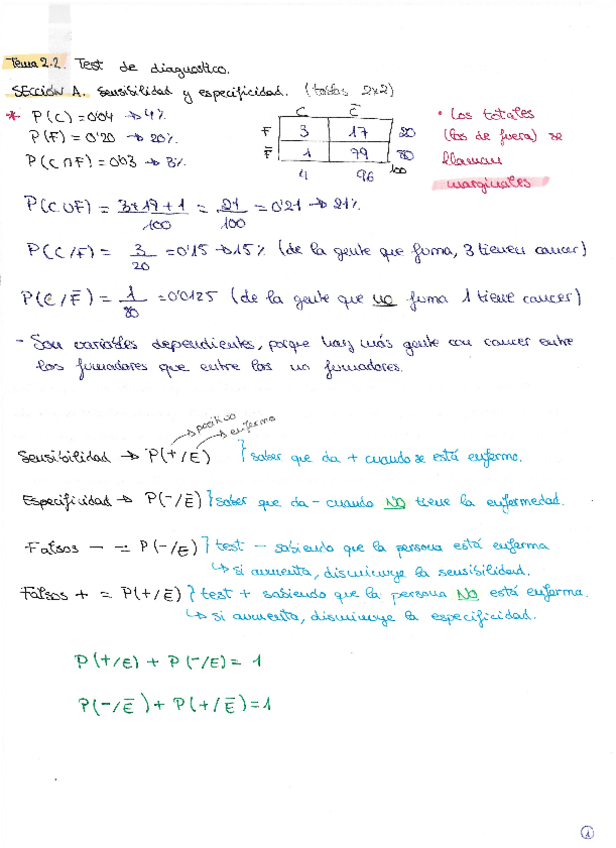 Tema 2.2. Test de diagnostico.
SECCIÓN A. Sensibilidad y especificidad. (tablas 2x2)
* P(C) = 0'04 → 4%
P(F) = 0'20 → 20%
P(C∩F) = 0'03 → 3%
C C̄
F 3 17 20
F̄ 1 79 80
4 96 100
• Los totales
(los de fuera) se
llaman
marginales
P(C∪F) = 3+17+1/100 = 21/100 = 0'21 → 21%
P(C/F) = 3/20 = 0'15 → 15% (de la gente que fuma, 3 tienen cancer)
P(C/F̄) = 1/80 = 0'0125 (de la gente que no fuma 1 tiene cancer)
- Son variables dependientes, porque hay más gente con cancer entre
los fumadores que entre los no fumadores.
→ positivo
→ enfermo
Sensibilidad → P(+/E) } saber que da + cuando se está enfermo.
Especificidad → P(-/Ē) } saber que da - cuando NO tiene la enfermedad.
Falsos - = P(-/E) } test - sabiendo que la persona está enferma
↳ si aumenta, disminuye la sensibilidad.
Falsos + = P(+/Ē) } test + sabiendo que la persona NO está enferma.
↳ si aumenta, disminuye la especificidad.
P(+/E) + P(-/E) = 1
P(-/Ē) + P(+/Ē) = 1
1